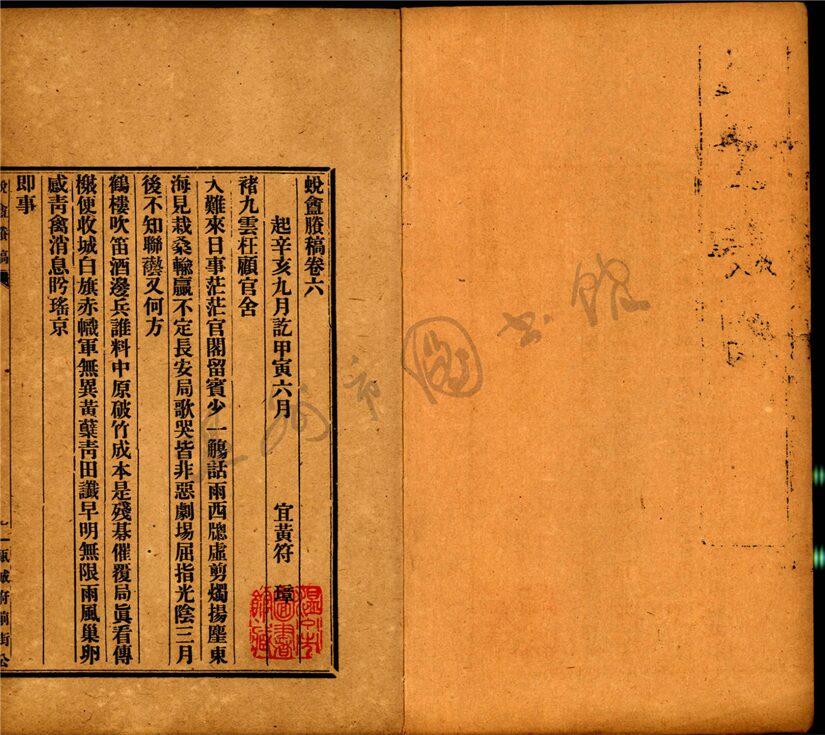 蛻盦賸稿卷六
起辛亥九月訖甲寅六月 宜黃符 璋
褚九雲枉顧官舍
人難來日事茫茫官閣留賓少一觴話雨西牕虛剪燭揚塵東
海見栽桑輸贏不定長安局歌哭皆非惡劇場屈指光陰三月
後不知聯藝又何方
鶴樓吹笛酒邊兵誰料中原破竹成本是殘棊催覆局眞看傳
檄便收城白旗赤幟軍無異黃蘗靑田讖早明無限雨風巢卵
感靑禽消息盻瑤京
卽事
蛻盦賸稿
溫州市圖書館
溫州市圖書館藏